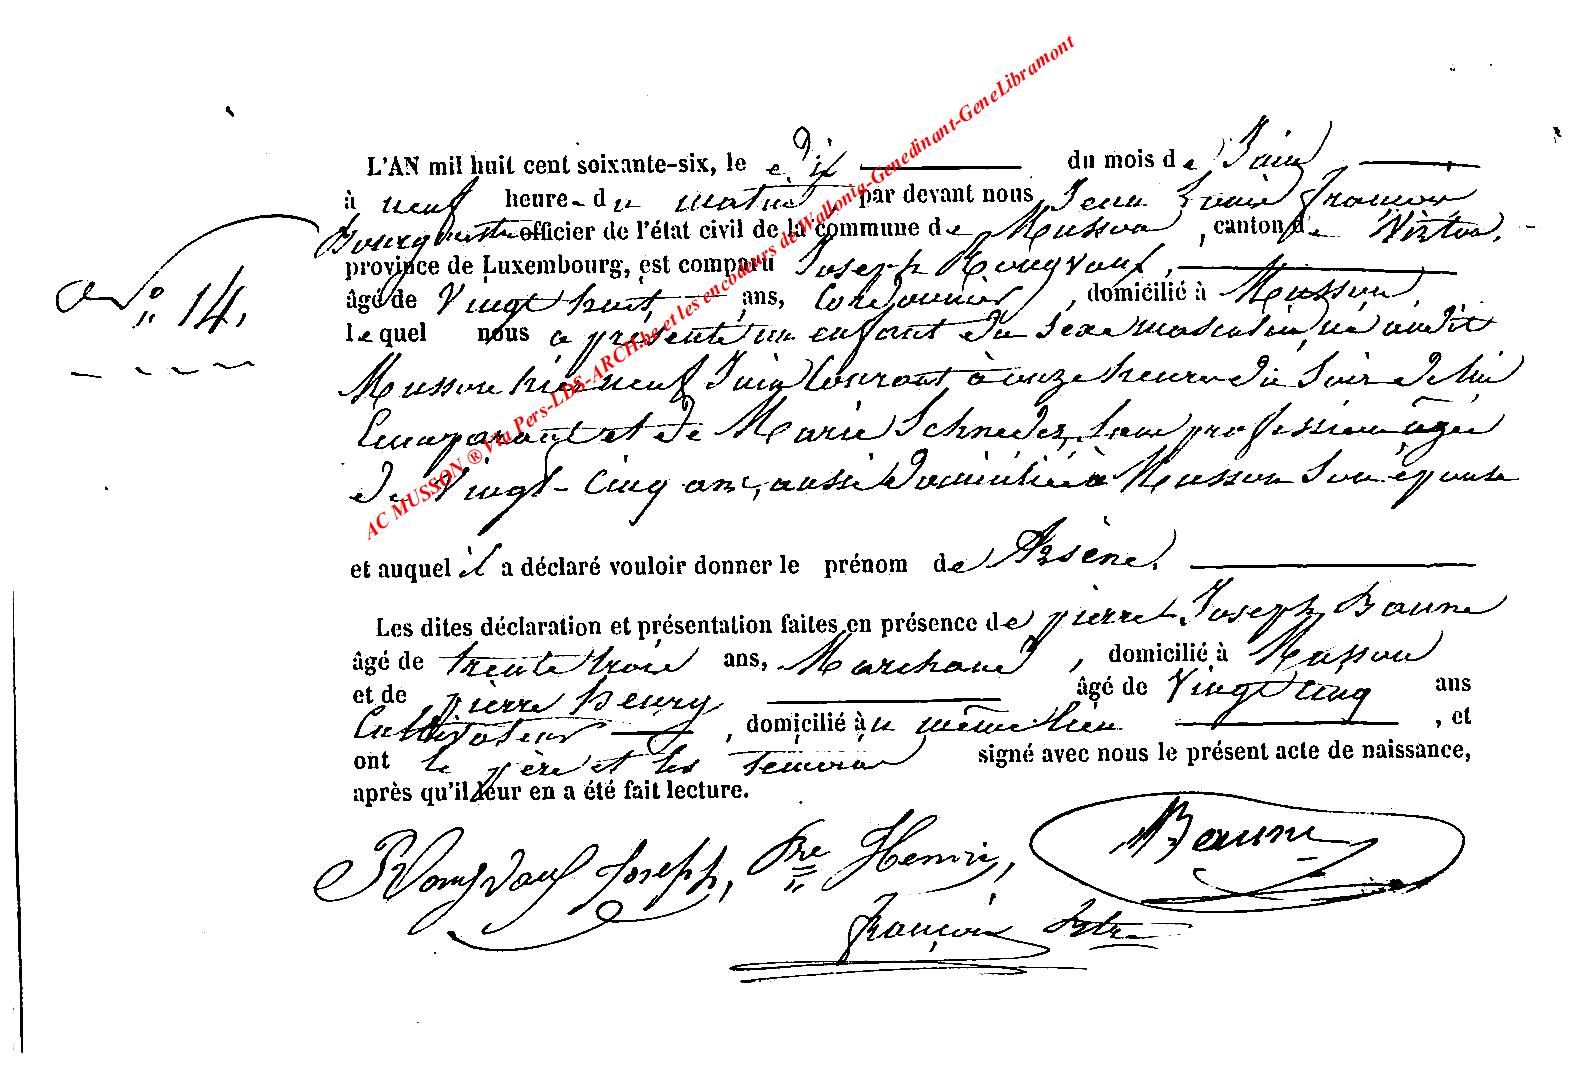 L'AN mil huit cent soixante-six, le Dix du mois de Juin
à neuf heures du matin, par devant nous Jean Louis François
Bourgmestre officier de l'état civil de la commune de Musson, canton de Virton,
province de Luxembourg, est comparu Joseph Rongvaux,
âgé de Vingt huit ans, Cordonnier, domicilié à Musson,
N° 14.
lequel nous a présenté un enfant du sexe masculin, né audit
Musson hier neuf Juin Courant à onze heures du Soir de lui
Comparant et de Marie Schneder, Sans profession agée
de Vingt-Cinq ans, aussi domiciliée à Musson Son épouse
et auquel il a déclaré vouloir donner le prénom de Arsène.
Les dites déclaration et présentation faites en présence de pierre Joseph Baune
âgé de trente trois ans, Marchand, domicilié à Musson
et de pierre henry âgé de Vingt Cinq ans
Cultivateur, domicilié au même lieu, et
ont le père et les témoins signé avec nous le présent acte de naissance,
après qu'il leur en a été fait lecture.
Rongvaux Joseph, Pre Henri, Baune
François
AC MUSSON ® Via Pers-LDS-ARCH.be et les encodeurs de Wallonia-Genedinant-GeneLibramont